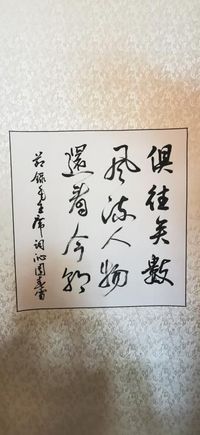 俱往矣數
風流人物
還看今朝
節錄毛主席詞沁園春雪